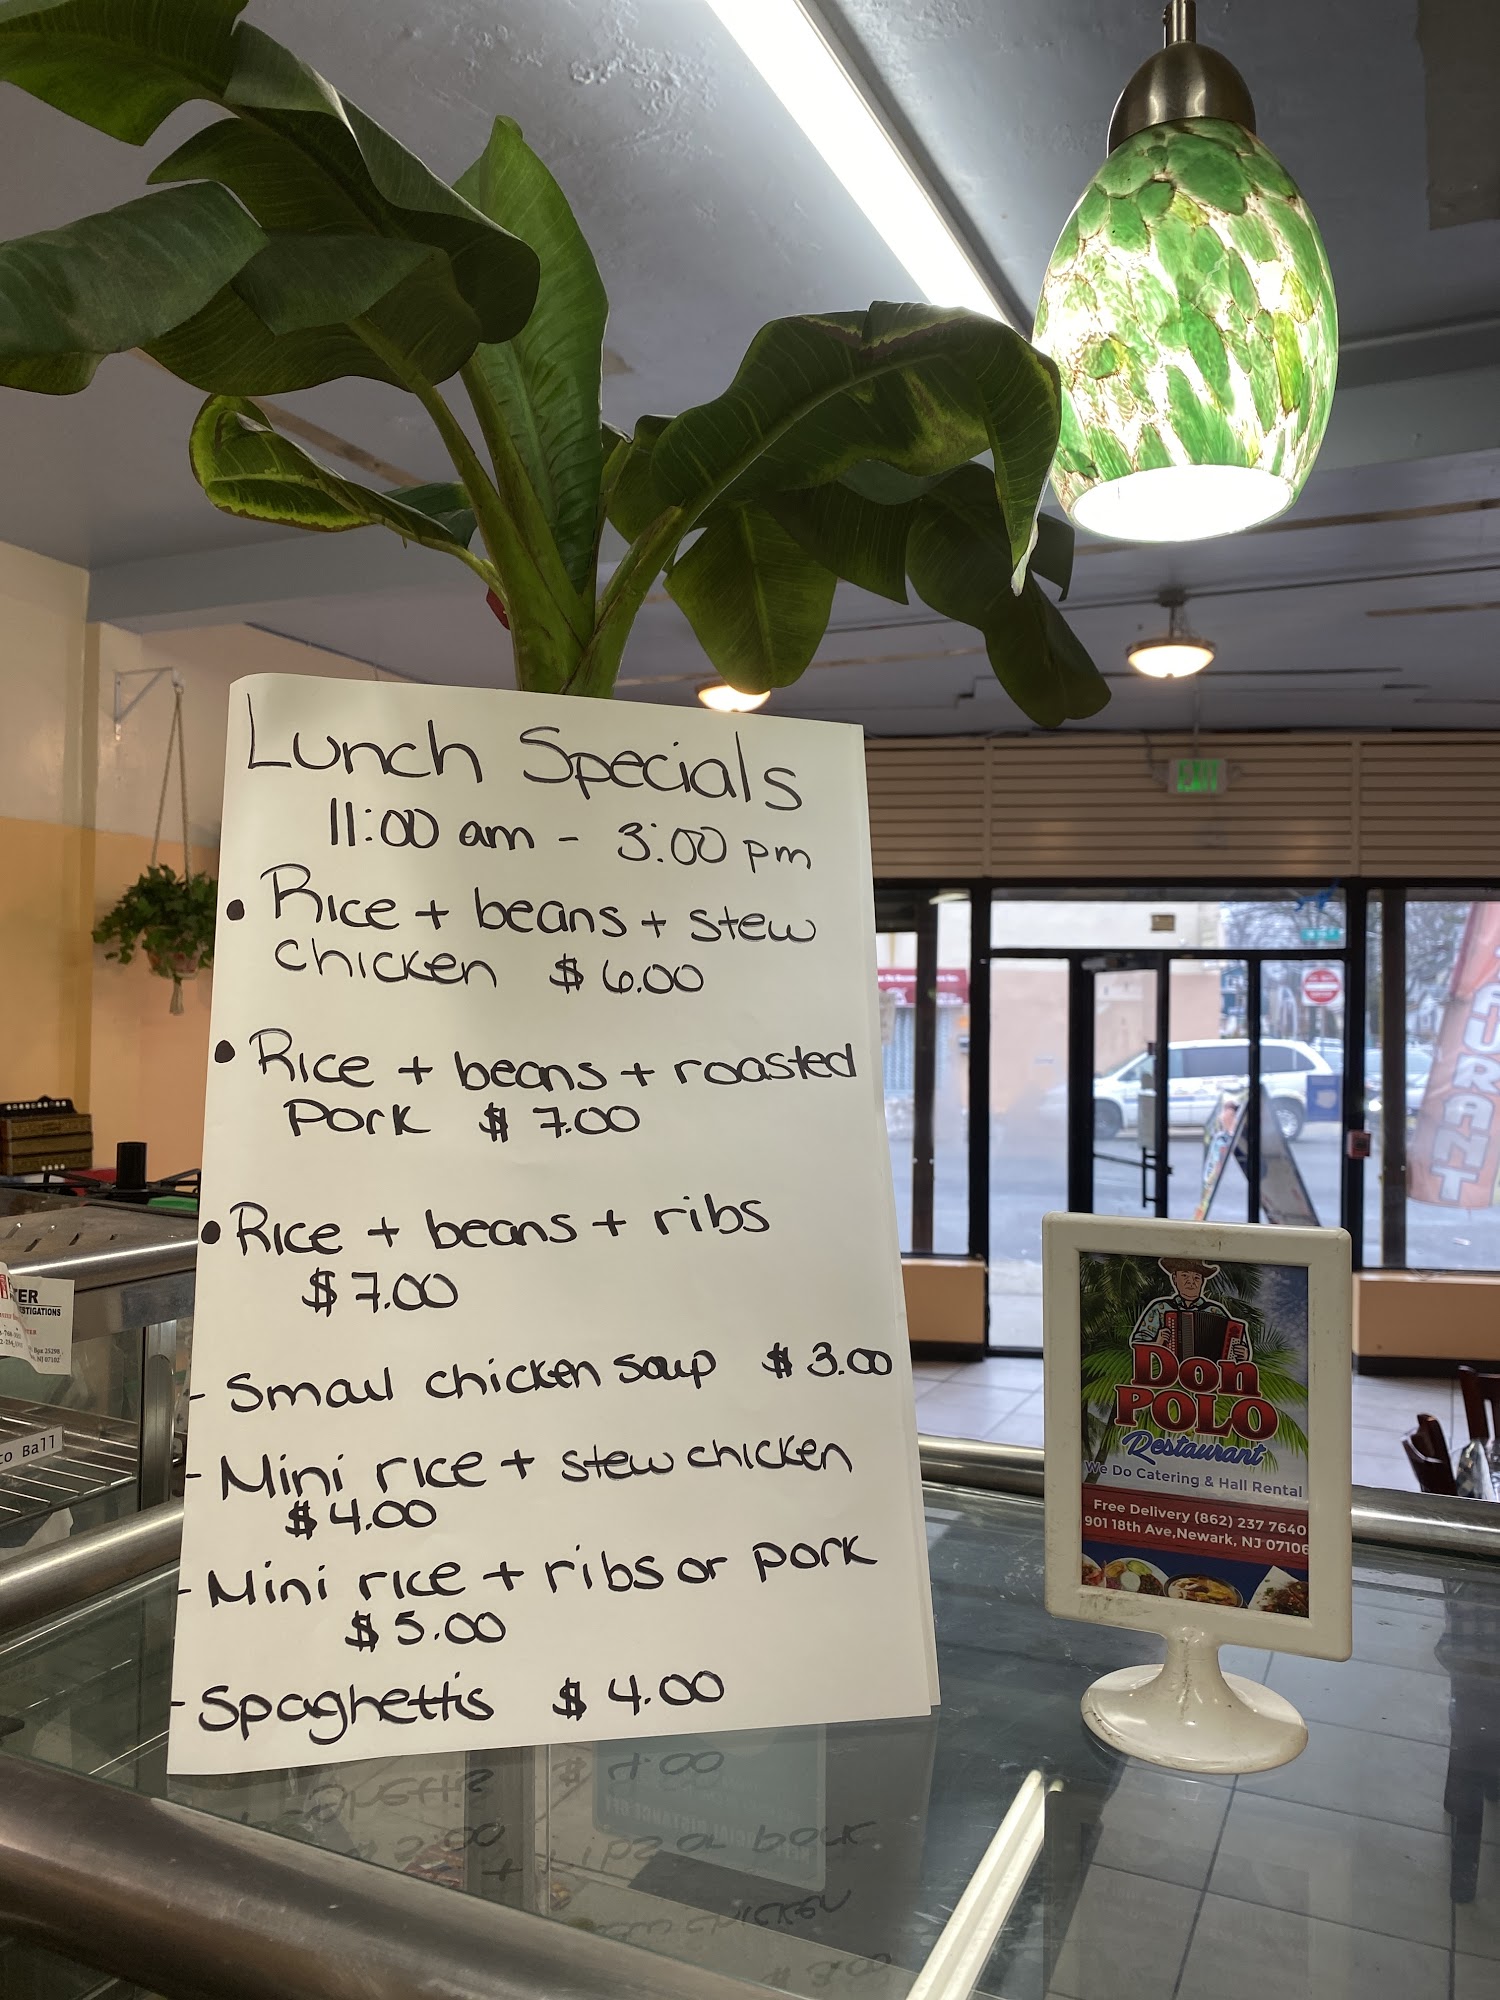 Lunch Specials
11:00 am - 3:00 pm
• Rice + beans + stew
chicken $ 6.00
• Rice + beans + roasted
Pork $ 7.00
• Rice + beans + ribs
$ 7.00
- Small chicken soup $ 3.00
- Mini rice + stew chicken
$ 4.00
- Mini rice + ribs or pork
$ 5.00
- Spaghettis $ 4.00
EXIT
Don
POLO
Restaurant
We Do Catering & Hall Rental
Free Delivery (862) 237 7640
901 18th Ave,Newark, NJ 07106
AURANT
TER
ESTIGATIONS
Box 25298
NJ 07102
to Ball